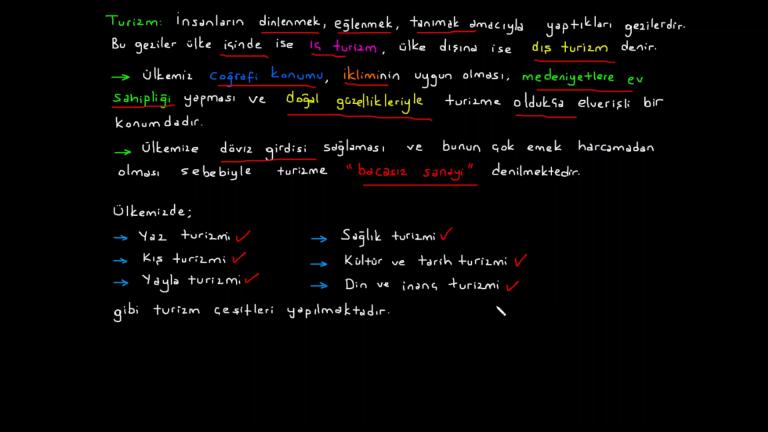 Turizm: İnsanların dinlenmek, eğlenmek, tanımak amacıyla yaptıkları gezilerdir.
Bu geziler ülke içinde ise iç turizm, ülke dışına ise dış turizm denir.
→ Ülkemiz coğrafi konumu, ikliminin uygun olması, medeniyetlere ev
sahipliği yapması ve doğal güzellikleriyle turizme oldukça elverişli bir
konumdadır.
→ Ülkemize döviz girdisi sağlaması ve bunun çok emek harcamadan
olması sebebiyle turizme "bacasız sanayi" denilmektedir.
Ülkemizde;
→ Yaz turizmi ✓
→ Kış turizmi ✓
→ Yayla turizmi ✓
→ Sağlık turizmi ✓
→ Kültür ve tarih turizmi ✓
→ Din ve inanç turizmi ✓
gibi turizm çeşitleri yapılmaktadır.